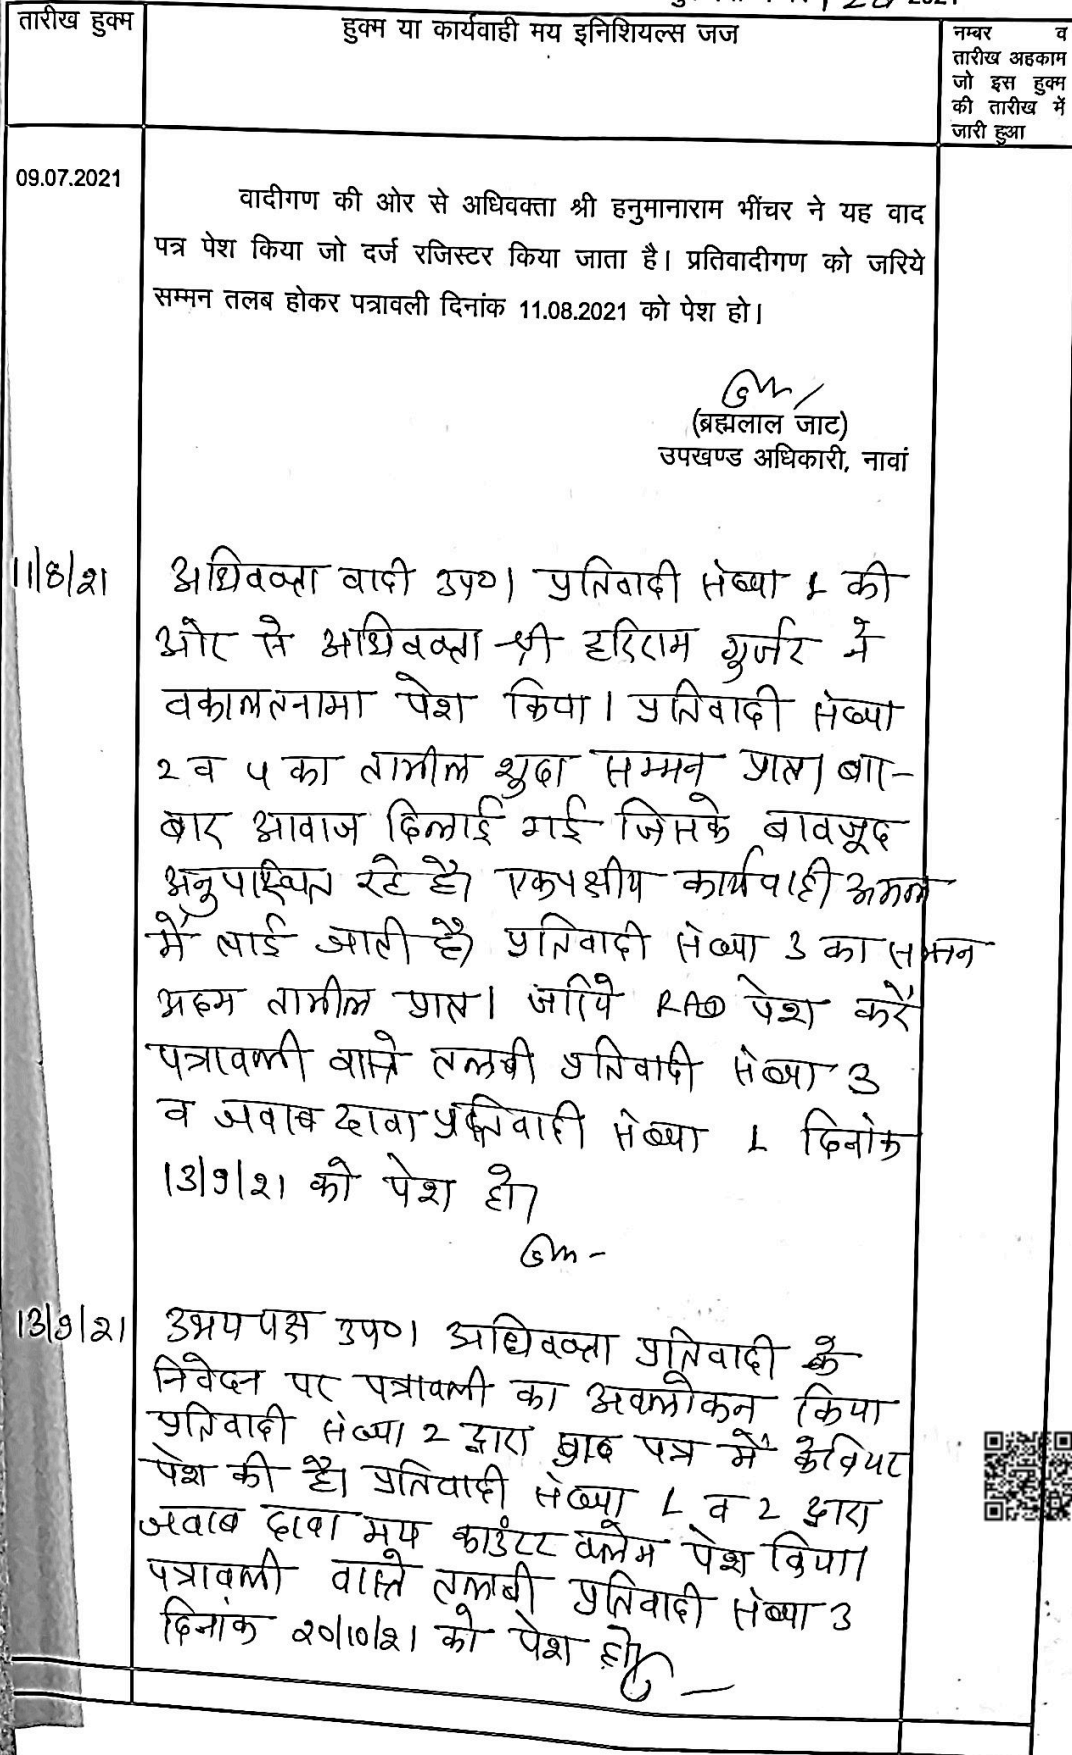 तारीख हुक्म
हुक्म या कार्यवाही मय इनिशियल्स जज
नम्बर व
तारीख अहकाम
जो इस हुक्म
की तारीख में
जारी हुआ
09.07.2021
वादीगण की ओर से अधिवक्ता श्री हनुमानाराम भींचर ने यह वाद
पत्र पेश किया जो दर्ज रजिस्टर किया जाता है। प्रतिवादीगण को जरिये
सम्मन तलब होकर पत्रावली दिनांक 11.08.2021 को पेश हो।
(ब्रह्मलाल जाट)
उपखण्ड अधिकारी, नावां
11/8/21
अधिवक्ता वादी उप०। प्रतिवादी संख्या 1 की
ओर से अधिवक्ता श्री हरिराम गुर्जर ने
वकालतनामा पेश किया। प्रतिवादी संख्या
2 व 4 का तामील शुदा सम्मन प्राप्त। बार-
बार आवाज दिलाई गई जिसके बावजूद
अनुपस्थित रहे है। एकपक्षीय कार्यवाही अमल
में लाई जाती है। प्रतिवादी संख्या 3 का सम्मन
अदम तामील प्राप्त। जरिये RAD पेश करें
पत्रावली वास्ते तलबी प्रतिवादी संख्या 3
व जवाब दावा प्रतिवादी संख्या 1 दिनांक
13/9/21 को पेश हो।
13/9/21
उभय पक्ष उप०। अधिवक्ता प्रतिवादी के
निवेदन पर पत्रावली का अवलोकन किया
प्रतिवादी संख्या 2 द्वारा वाद पत्र में केवियट
पेश की है। प्रतिवादी संख्या 1 व 2 द्वारा
जवाब दावा मय काउंटर क्लेम पेश किया।
पत्रावली वास्ते तलबी प्रतिवादी संख्या 3
दिनांक 20/10/21 को पेश हो।